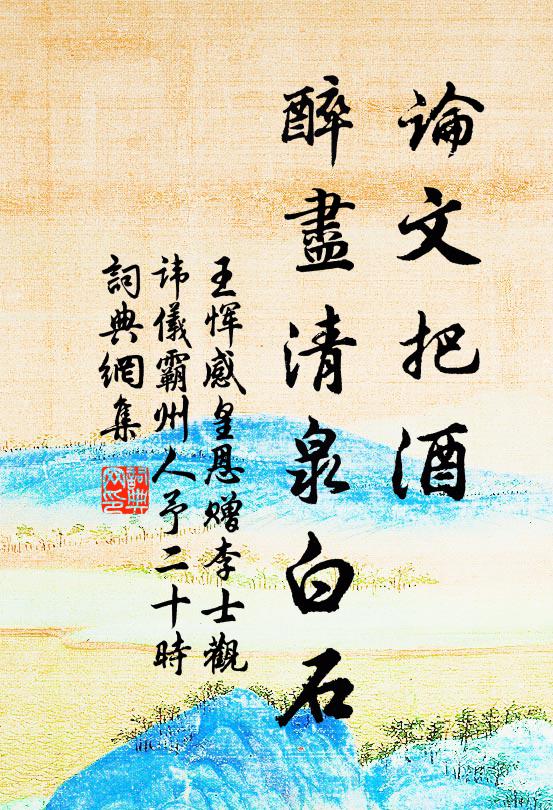 論文把酒
醉盡清泉白石
王惲感皇恩贈李士觀
諱儀霸州人予二十時
詞典網集
詞典